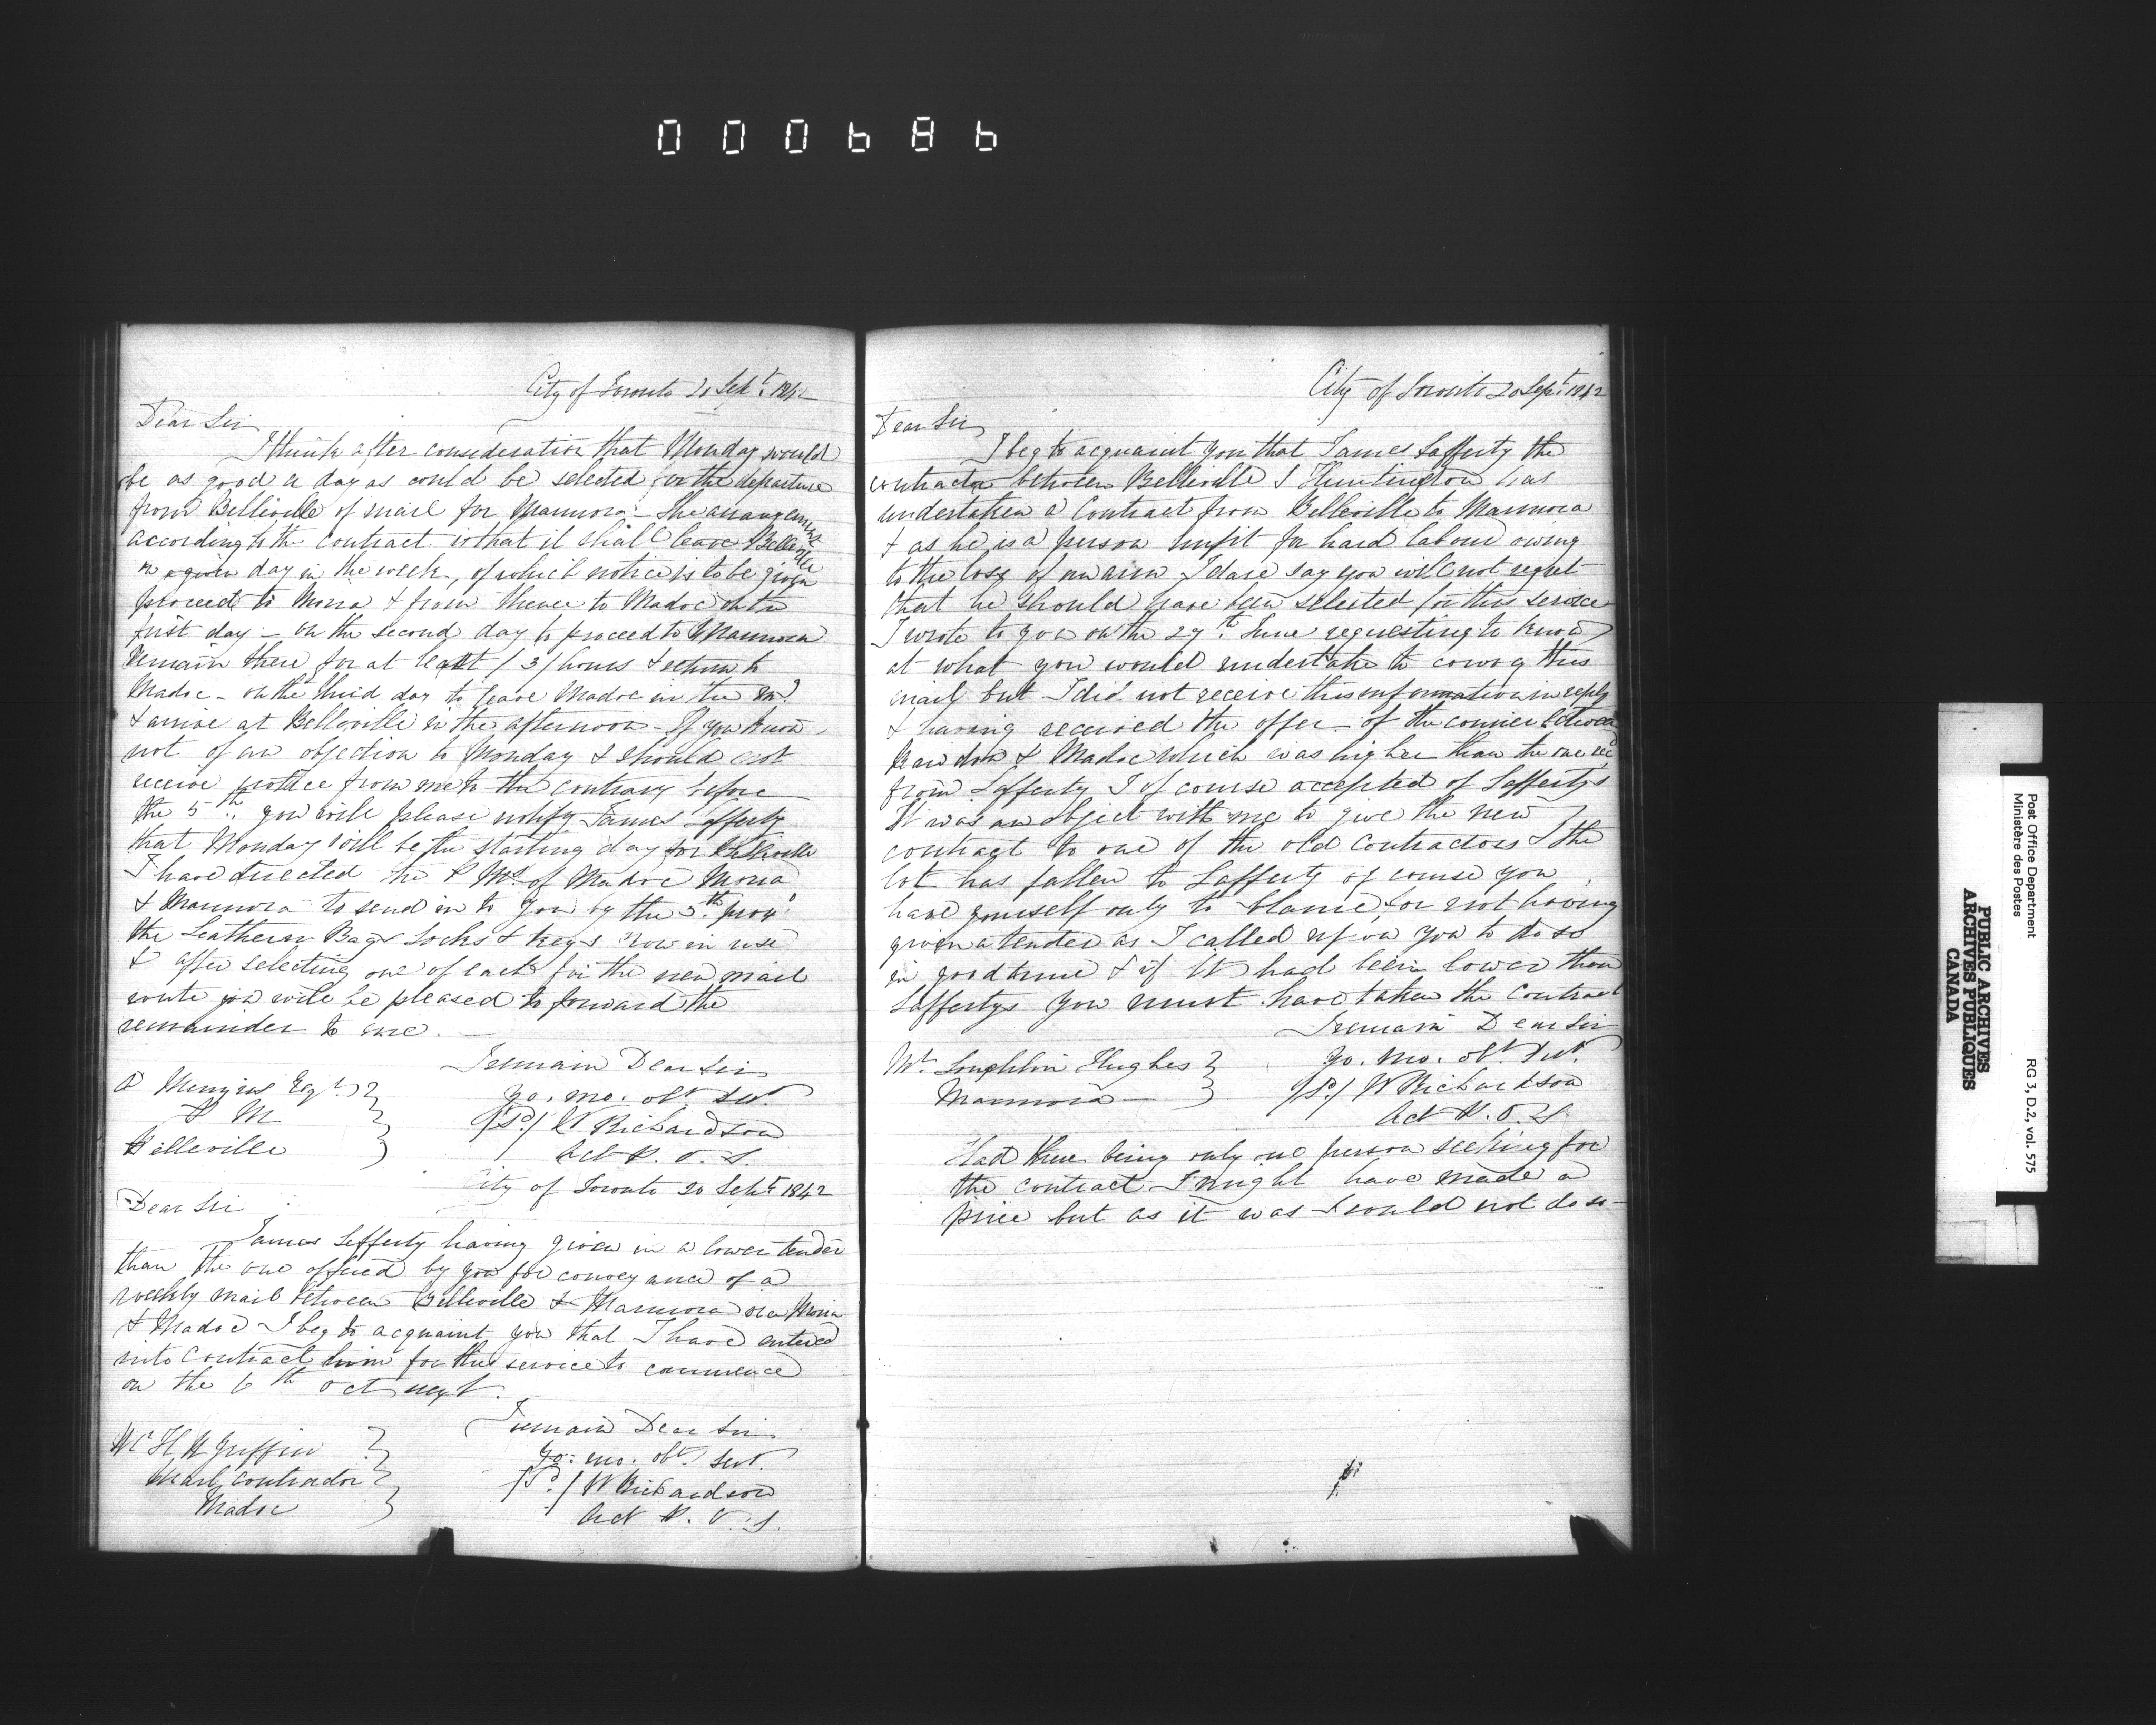 000686
City of Toronto 20 Sept. 1842
Dear Sir
I think after consideration that Monday would
be as good a day as could be selected for the departure
from Belleville of mail for Marmora. The arrangement
according to the contract is that it shall leave Belleville
on a given day in the week, of which notice is to be given
proceed to Moira & from thence to Madoc on the
first day - on the second day to proceed to Marmora
remain there for at least /3/ hours & return to
Madoc - on the third day to leave Madoc in the
& arrive at Belleville in the afternoon - If you know
not of an objection to Monday & should not
receive notice from me to the contrary before
the 5th. you will please notify James Lafferty
that Monday will be the starting day for Belleville
I have directed the P Ms. of Madoc Moira
& Marmora to send in to you by the 5th. proxo
the Leathern Bags Locks & keys now in use
& after selecting one of each for the new mail
route you will be pleased to forward the
remainder to me. -
I remain Dear Sir
yo. mo. obt. Sert.
/Sd./ W Richardson
Act P. O. S.
Menzies Esqr.
P M
Belleville
City of Toronto 20 Sept 1842
Dear Sir
James Lefferty having given in a lower tender
than the one offered by you for conveyance of a
weekly mail between Belleville & Marmora via Moira
& Madoc I beg to acquaint you that I have entered
into contract him for the service to commence
on the 6th Oct next.
I remain Dear Sir
yo. mo. obt. Sert.
/Sd./ W Richardson
Act P. O. S.
Mr H W Griffin
Mail Contractor
Madoc
City of Toronto 20 Sept. 1842
Dear Sir
I beg to acquaint you that James Lafferty the
contractor between Belleville & Huntingdon has
undertaken a Contract from Belleville to Marmora
& as he is a person unfit for hard labour owing
to the loss of an arm I dare say you will not regret
that he should have been selected for this service
I wrote to you on the 27th. June requesting to know
at what you would undertake to convey this
mail but I did not receive this information in reply
& having received the offer of the courier between
Rawdon & Madoc which was higher than the one recd
from Lafferty I of course accepted of Laffertys
It was an object with me to give the new
contract to one of the old Contractors & the
lot has fallen to Lafferty of course you
have yourself only to blame for not having
given a tender as I called upon you to do so
in good time & if it had been lower than
Laffertys you must have taken the Contract
I remain Dear Sir
yo. mo. obt. Sert.
/Sd./ W Richardson
Act P. O. S.
Mr. Loughlin Hughes
Marmora
Had there being only one person seeking for
the contract I might have made a
price but as it was I could not do so -
Post Office Department
Ministère des Postes
RG 3, D.2, vol. 575
PUBLIC ARCHIVES
ARCHIVES PUBLIQUES
CANADA